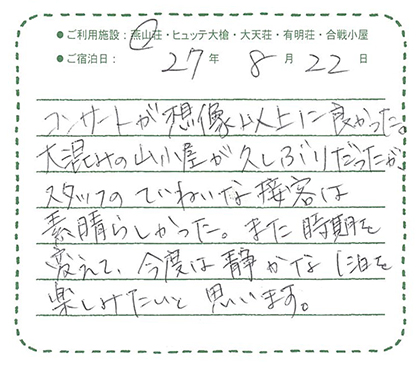 ●ご利用施設：燕山荘・ヒュッテ大槍・大天荘・有明荘・合戦小屋
●ご宿泊日： 27年 8月 22日
コンサートが想像以上に良かった。
大混みの山小屋が久しぶりだったが、
スタッフのていねいな接客は
素晴らしかった。また時期を
変えて、今度は静かな1泊を
楽しみたいと思います。